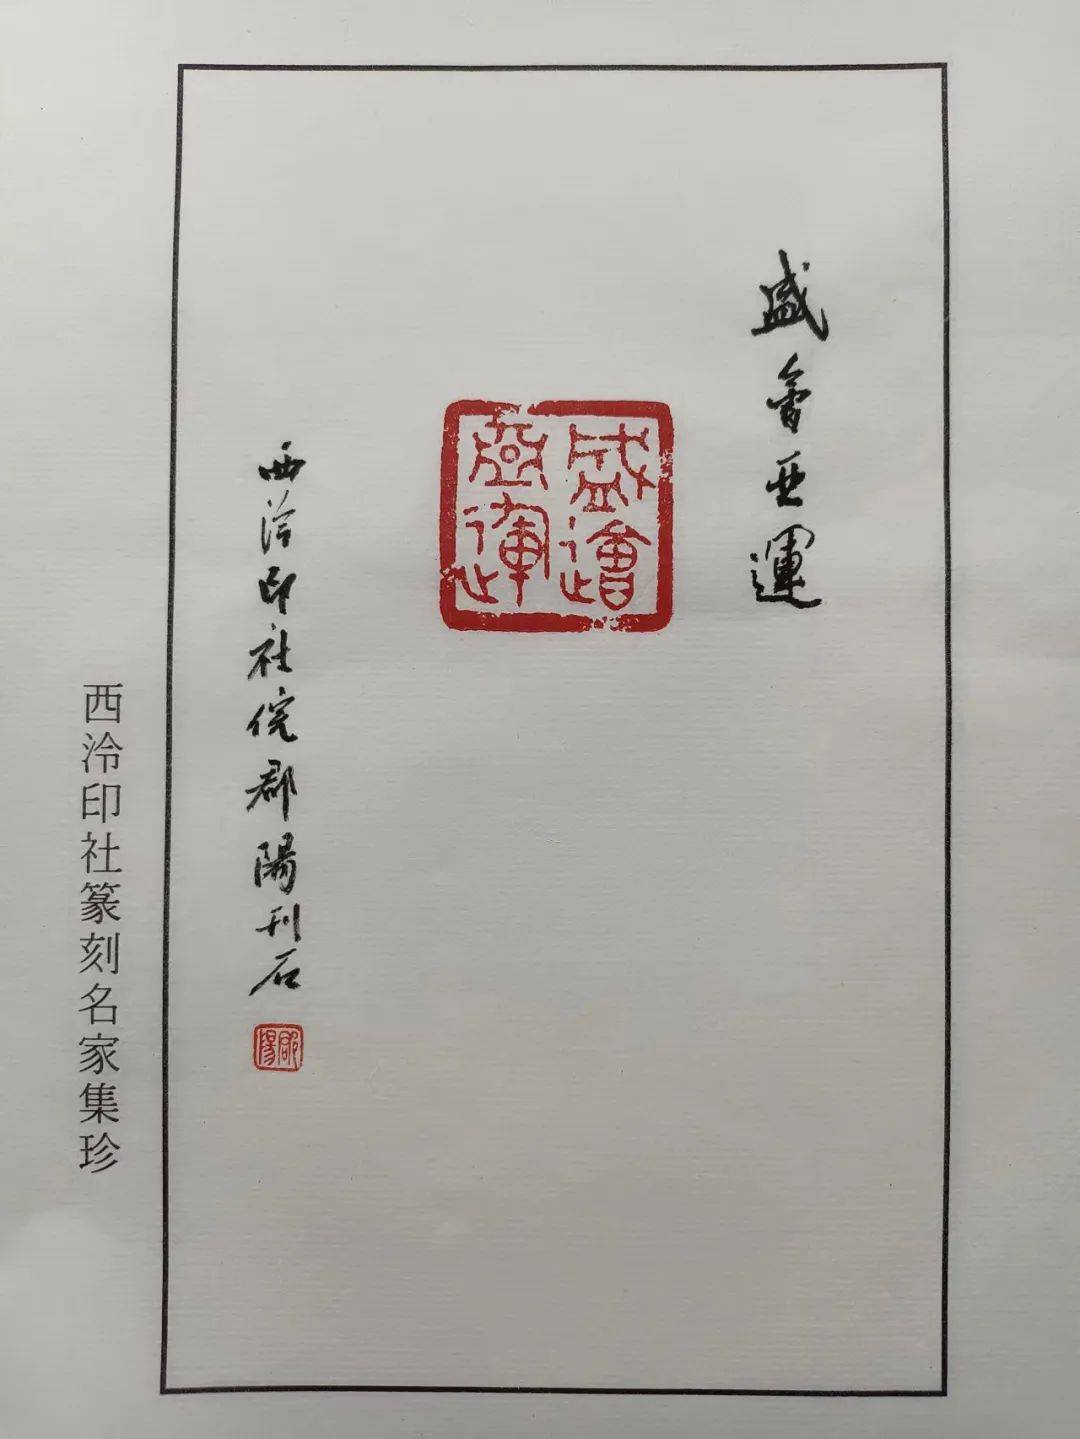 盛會亞運
盛會
亞運
西泠印社倪郡陽刊石
郡陽
西泠印社篆刻名家集珍